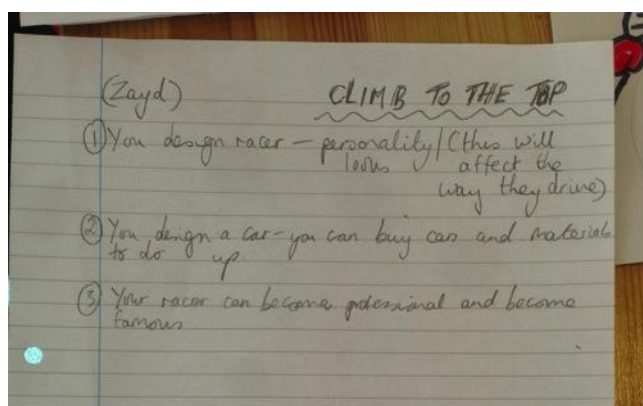 (Zayd)
CLIMB TO THE TOP
① You design racer – personality/(this will
looks affect the
way they drive)
② You design a car – you can buy cars and materials
to do up
③ Your racer can become professional and become
famous